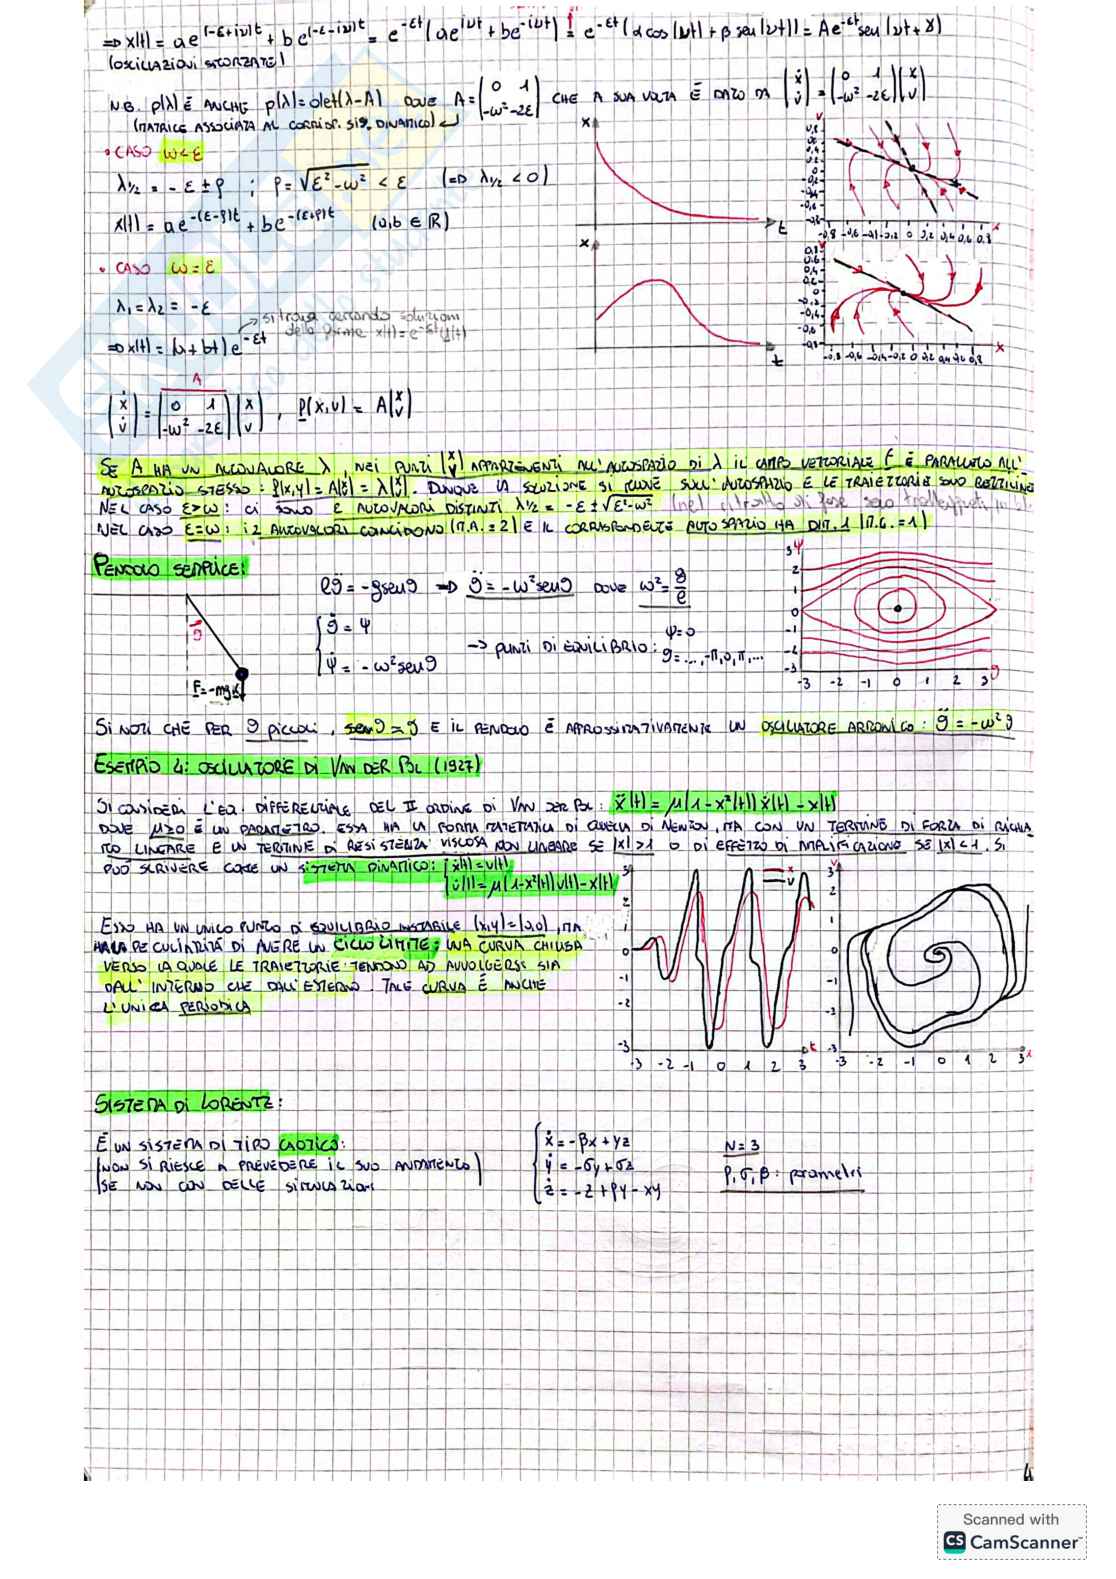 => x(t) = ae^(-ε+iν)t + be^(-ε-iν)t = e^-εt (ae^iνt + be^-iνt) = e^-εt (α cos(νt) + β sen(νt)) = Ae^-εt sen(νt + γ)
(OSCILLAZIONI SMORZATE)
N.B. p(λ) È ANCHE p(λ) = det(λ-A) DOVE A = (0 1 -ω² -2ε) CHE A SUA VOLTA È DATO DA (ẋ v̇) = (0 1 -ω² -2ε)(x v)
(MATRICE ASSOCIATA AL CORRISP. SIS. DINAMICO)
• CASO ω<ε
λ1/2 = -ε ± ρ ; ρ = √ε²-ω² < ε (=> λ1/2 < 0)
x(t) = ae^-(ε-ρ)t + be^-(ε+ρ)t (a,b ∈ ℝ)
• CASO ω = ε
λ1 = λ2 = -ε
si trova cercando soluzioni
della forma x(t) = e^-εt u(t)
=> x(t) = (a + bt) e^-εt
A
(ẋ v̇) = (0 1 -ω² -2ε)(x v) , F(x,v) = A(x v)
SE A HA UN AUTOVALORE λ, NEI PUNTI (x v) APPARTENENTI ALL'AUTOSPAZIO DI λ IL CAMPO VETTORIALE F È PARALLELO ALL'
AUTOSPAZIO STESSO: F(x,v) = A(x v) = λ(x v). DUNQUE LA SOLUZIONE SI MUOVE SULL'AUTOSPAZIO E LE TRAIETTORIE SONO RETTILINEE
NEL CASO ε>ω: CI SONO 2 AUTOVALORI DISTINTI λ1/2 = -ε ± √ε²-ω² (nel ritratto di fase sono
NEL CASO ε=ω: i 2 AUTOVALORI COINCIDONO (M.A.=2) E IL CORRISPONDENTE AUTOSPAZIO HA DIM. 1 (M.G.=1)
PENDOLO SEMPLICE:
ℓϑ̈ = -g senϑ => ϑ̈ = -ω² senϑ DOVE ω² = g/ℓ
ϑ̇ = ψ
ψ̇ = -ω² senϑ
-> PUNTI DI EQUILIBRIO: ψ=0
ϑ = ..., -π, 0, π, ...
SI NOTI CHE PER ϑ piccoli, senϑ ≈ ϑ E IL PENDOLO È APPROSSIMATIVAMENTE UN OSCILLATORE ARMONICO: ϑ̈ = -ω²ϑ
ESEMPIO 4: OSCILLATORE DI VAN DER POL (1927)
SI CONSIDERI L'EQ. DIFFERENZIALE DEL II ORDINE DI VAN DER POL: ẍ(t) = μ(1-x²(t))ẋ(t) - x(t)
DOVE μ≥0 È UN PARAMETRO. ESSA HA LA FORMA MATEMATICA DI QUELLA DI NEWTON, MA CON UN TERMINE DI FORZA DI RICHIA
MO LINEARE E UN TERMINE DI RESISTENZA VISCOSA NON LINEARE SE |x|>1 O DI EFFETTO DI AMPLIFICAZIONE SE |x|<1. SI
PUÒ SCRIVERE COME UN SISTEMA DINAMICO: ẋ(t) = v(t)
v̇(t) = μ(1-x²(t))v(t) - x(t)
ESSO HA UN UNICO PUNTO DI EQUILIBRIO INSTABILE (x,y) = (0,0), MA
HA LA PECULIARITÀ DI AVERE UN CICLO LIMITE: UNA CURVA CHIUSA
VERSO LA QUALE LE TRAIETTORIE TENDONO AD AVVOLGERSI SIA
DALL'INTERNO CHE DALL'ESTERNO. TALE CURVA È ANCHE
L'UNICA PERIODICA
SISTEMA DI LORENTZ:
È UN SISTEMA DI TIPO CAOTICO:
(NON SI RIESCE A PREVEDERE IL SUO ANDAMENTO
SE NON CON DELLE SIMULAZIONI)
ẋ = -βx + yz
ẏ = -σy + σz
ż = -z + ρy - xy
N = 3
ρ, σ, β: parametri
4
Scanned with
CS CamScanner